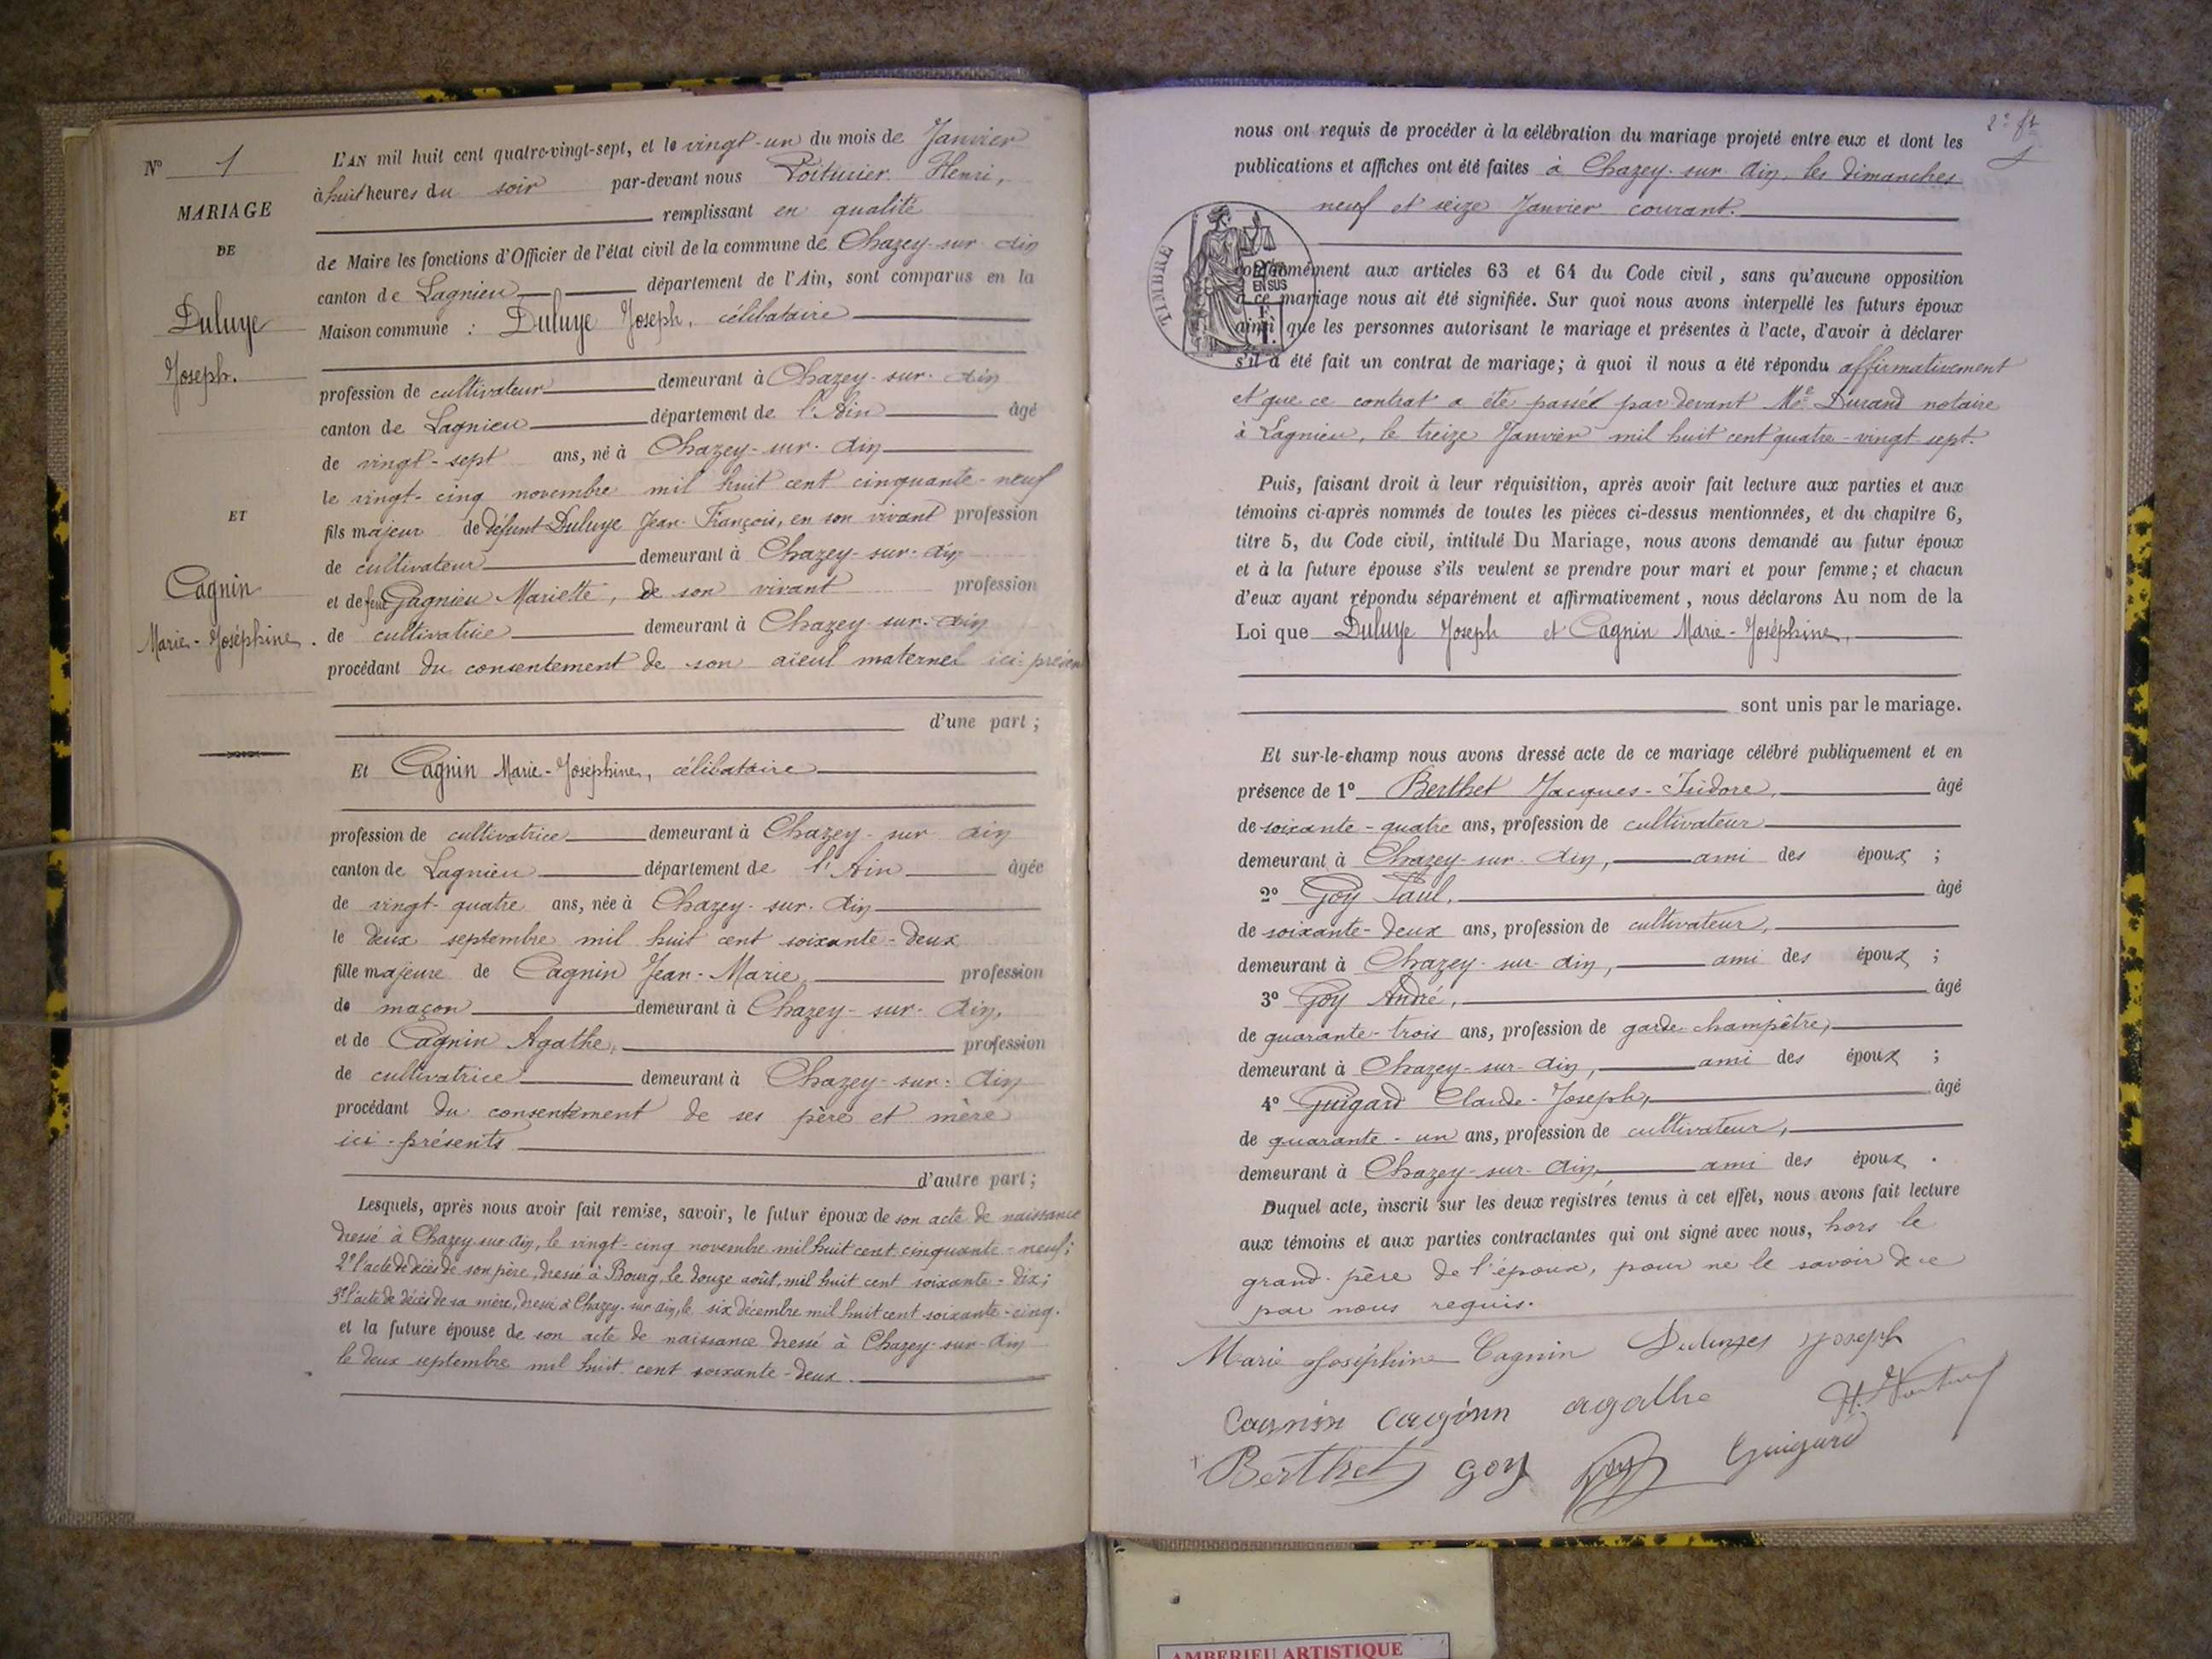 N° 1
MARIAGE
DE
Duluye
Joseph.
ET
Cagnin
Marie-Joséphine.
L'AN mil huit cent quatre-vingt-sept, et le vingt-un du mois de Janvier
à huit heures du soir par-devant nous Poiturier Henri,
remplissant en qualité
de Maire les fonctions d'Officier de l'état civil de la commune de Chazey-sur-Ain
canton de Lagnieu département de l'Ain, sont comparus en la
Maison commune : Duluye Joseph, célibataire
profession de cultivateur demeurant à Chazey-sur-Ain
canton de Lagnieu département de l'Ain âgé
de vingt-sept ans, né à Chazey-sur-Ain
le vingt-cinq novembre mil huit cent cinquante-neuf
fils majeur de défunt Duluye Jean-François, en son vivant profession
de cultivateur demeurant à Chazey-sur-Ain
et de feue Gagnieu Mariette, de son vivant profession
de cultivatrice demeurant à Chazey-sur-Ain
procédant du consentement de son aïeul maternel ici présent
d'une part ;
Et Cagnin Marie-Joséphine, célibataire
profession de cultivatrice demeurant à Chazey-sur-Ain
canton de Lagnieu département de l'Ain âgée
de vingt-quatre ans, née à Chazey-sur-Ain
le deux septembre mil huit cent soixante-deux
fille majeure de Cagnin Jean-Marie, profession
de maçon demeurant à Chazey-sur-Ain,
et de Cagnin Agathe, profession
de cultivatrice demeurant à Chazey-sur-Ain
procédant du consentement de ses père et mère
ici-présents
d'autre part ;
Lesquels, après nous avoir fait remise, savoir, le futur époux de son acte de naissance
dressé à Chazey-sur-Ain, le vingt-cinq novembre mil huit cent cinquante-neuf;
2° l'acte de décès de son père, dressé à Bourg, le douze août, mil huit cent soixante-dix;
3° l'acte de décès de sa mère, dressé à Chazey-sur-Ain, le six décembre mil huit cent soixante-cinq.
et la future épouse de son acte de naissance dressé à Chazey-sur-Ain
le deux septembre mil huit cent soixante-deux.
nous ont requis de procéder à la célébration du mariage projeté entre eux et dont les
publications et affiches ont été faites à Chazey-sur-Ain, les dimanches
neuf et seize Janvier courant.
TIMBRE
EN SUS
conformément aux articles 63 et 64 du Code civil, sans qu'aucune opposition
à ce mariage nous ait été signifiée. Sur quoi nous avons interpellé les futurs époux
ainsi que les personnes autorisant le mariage et présentes à l'acte, d'avoir à déclarer
s'il a été fait un contrat de mariage; à quoi il nous a été répondu affirmativement
et que ce contrat a été passé par devant Me Durand notaire
à Lagnieu, le treize Janvier mil huit cent quatre-vingt-sept.
Puis, faisant droit à leur réquisition, après avoir fait lecture aux parties et aux
témoins ci-après nommés de toutes les pièces ci-dessus mentionnées, et du chapitre 6,
titre 5, du Code civil, intitulé Du Mariage, nous avons demandé au futur époux
et à la future épouse s'ils veulent se prendre pour mari et pour femme; et chacun
d'eux ayant répondu séparément et affirmativement, nous déclarons Au nom de la
Loi que Duluye Joseph et Cagnin Marie-Joséphine,
sont unis par le mariage.
Et sur-le-champ nous avons dressé acte de ce mariage célébré publiquement et en
présence de 1° Berthet Jacques-Isidore, âgé
de soixante-quatre ans, profession de cultivateur
demeurant à Chazey-sur-Ain, ami des époux ;
2° Goy Paul, âgé
de soixante-deux ans, profession de cultivateur,
demeurant à Chazey-sur-Ain, ami des époux ;
3° Goy André, âgé
de quarante-trois ans, profession de garde-champêtre,
demeurant à Chazey-sur-Ain, ami des époux ;
4° Guigard Claude-Joseph, âgé
de quarante-un ans, profession de cultivateur,
demeurant à Chazey-sur-Ain, ami des époux.
Duquel acte, inscrit sur les deux registres tenus à cet effet, nous avons fait lecture
aux témoins et aux parties contractantes qui ont signé avec nous, hors le
grand-père de l'époux, pour ne le savoir de ce
par nous requis.
Marie Joséphine Cagnin Joseph
Cagnin Cagnin agathe
Berthet goy Goy Guigard
AMBERIEU ARTISTIQUE